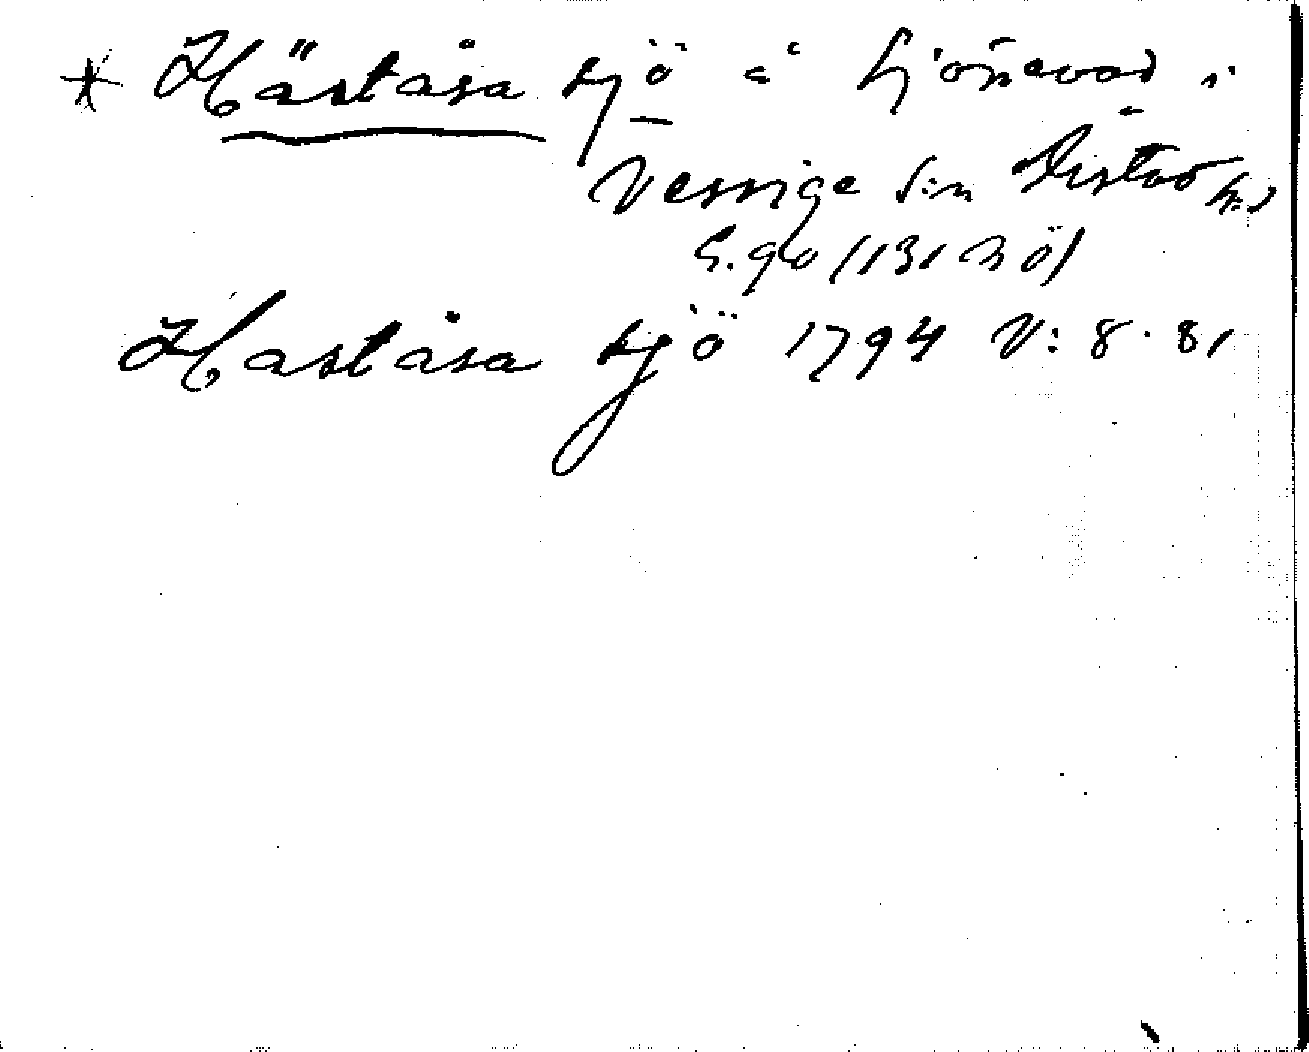 * Häståsa sjö å Sjönevad i
Vessige s:n Årstad h:d
S. 90 (131 n ö)
Haståsa sjö 1794 V: 8. 81